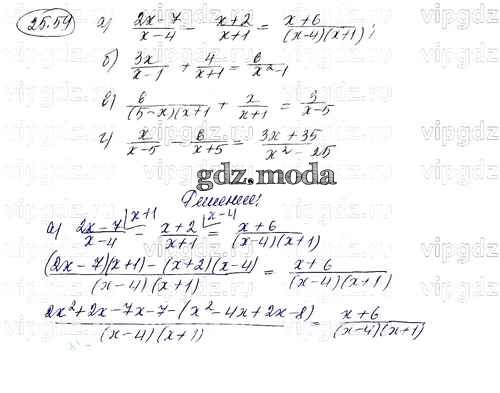 25.54 а) (2x-7)/(x-4) - (x+2)/(x+1) = (x+6)/((x-4)(x+1));
б) 3x/(x-1) + 4/(x+1) = 6/(x²-1)
в) 6/((5-x)(x+1) + x/(x+1) = 3/(x-5)
г) x/(x-5) - 8/(x+5) = (3x+35)/(x²-25)
gdz.moda
Решение:
а) (2x-7)/(x-4) \x+1 = (x+2)/(x+1) \x-4 = (x+6)/((x-4)(x+1))
((2x-7)(x+1)-(x+2)(x-4))/((x-4)(x+1)) = (x+6)/((x-4)(x+1))
(2x²+2x-7x-7-(x²-4x+2x-8))/((x-4)(x+1)) = (x+6)/((x-4)(x+1))